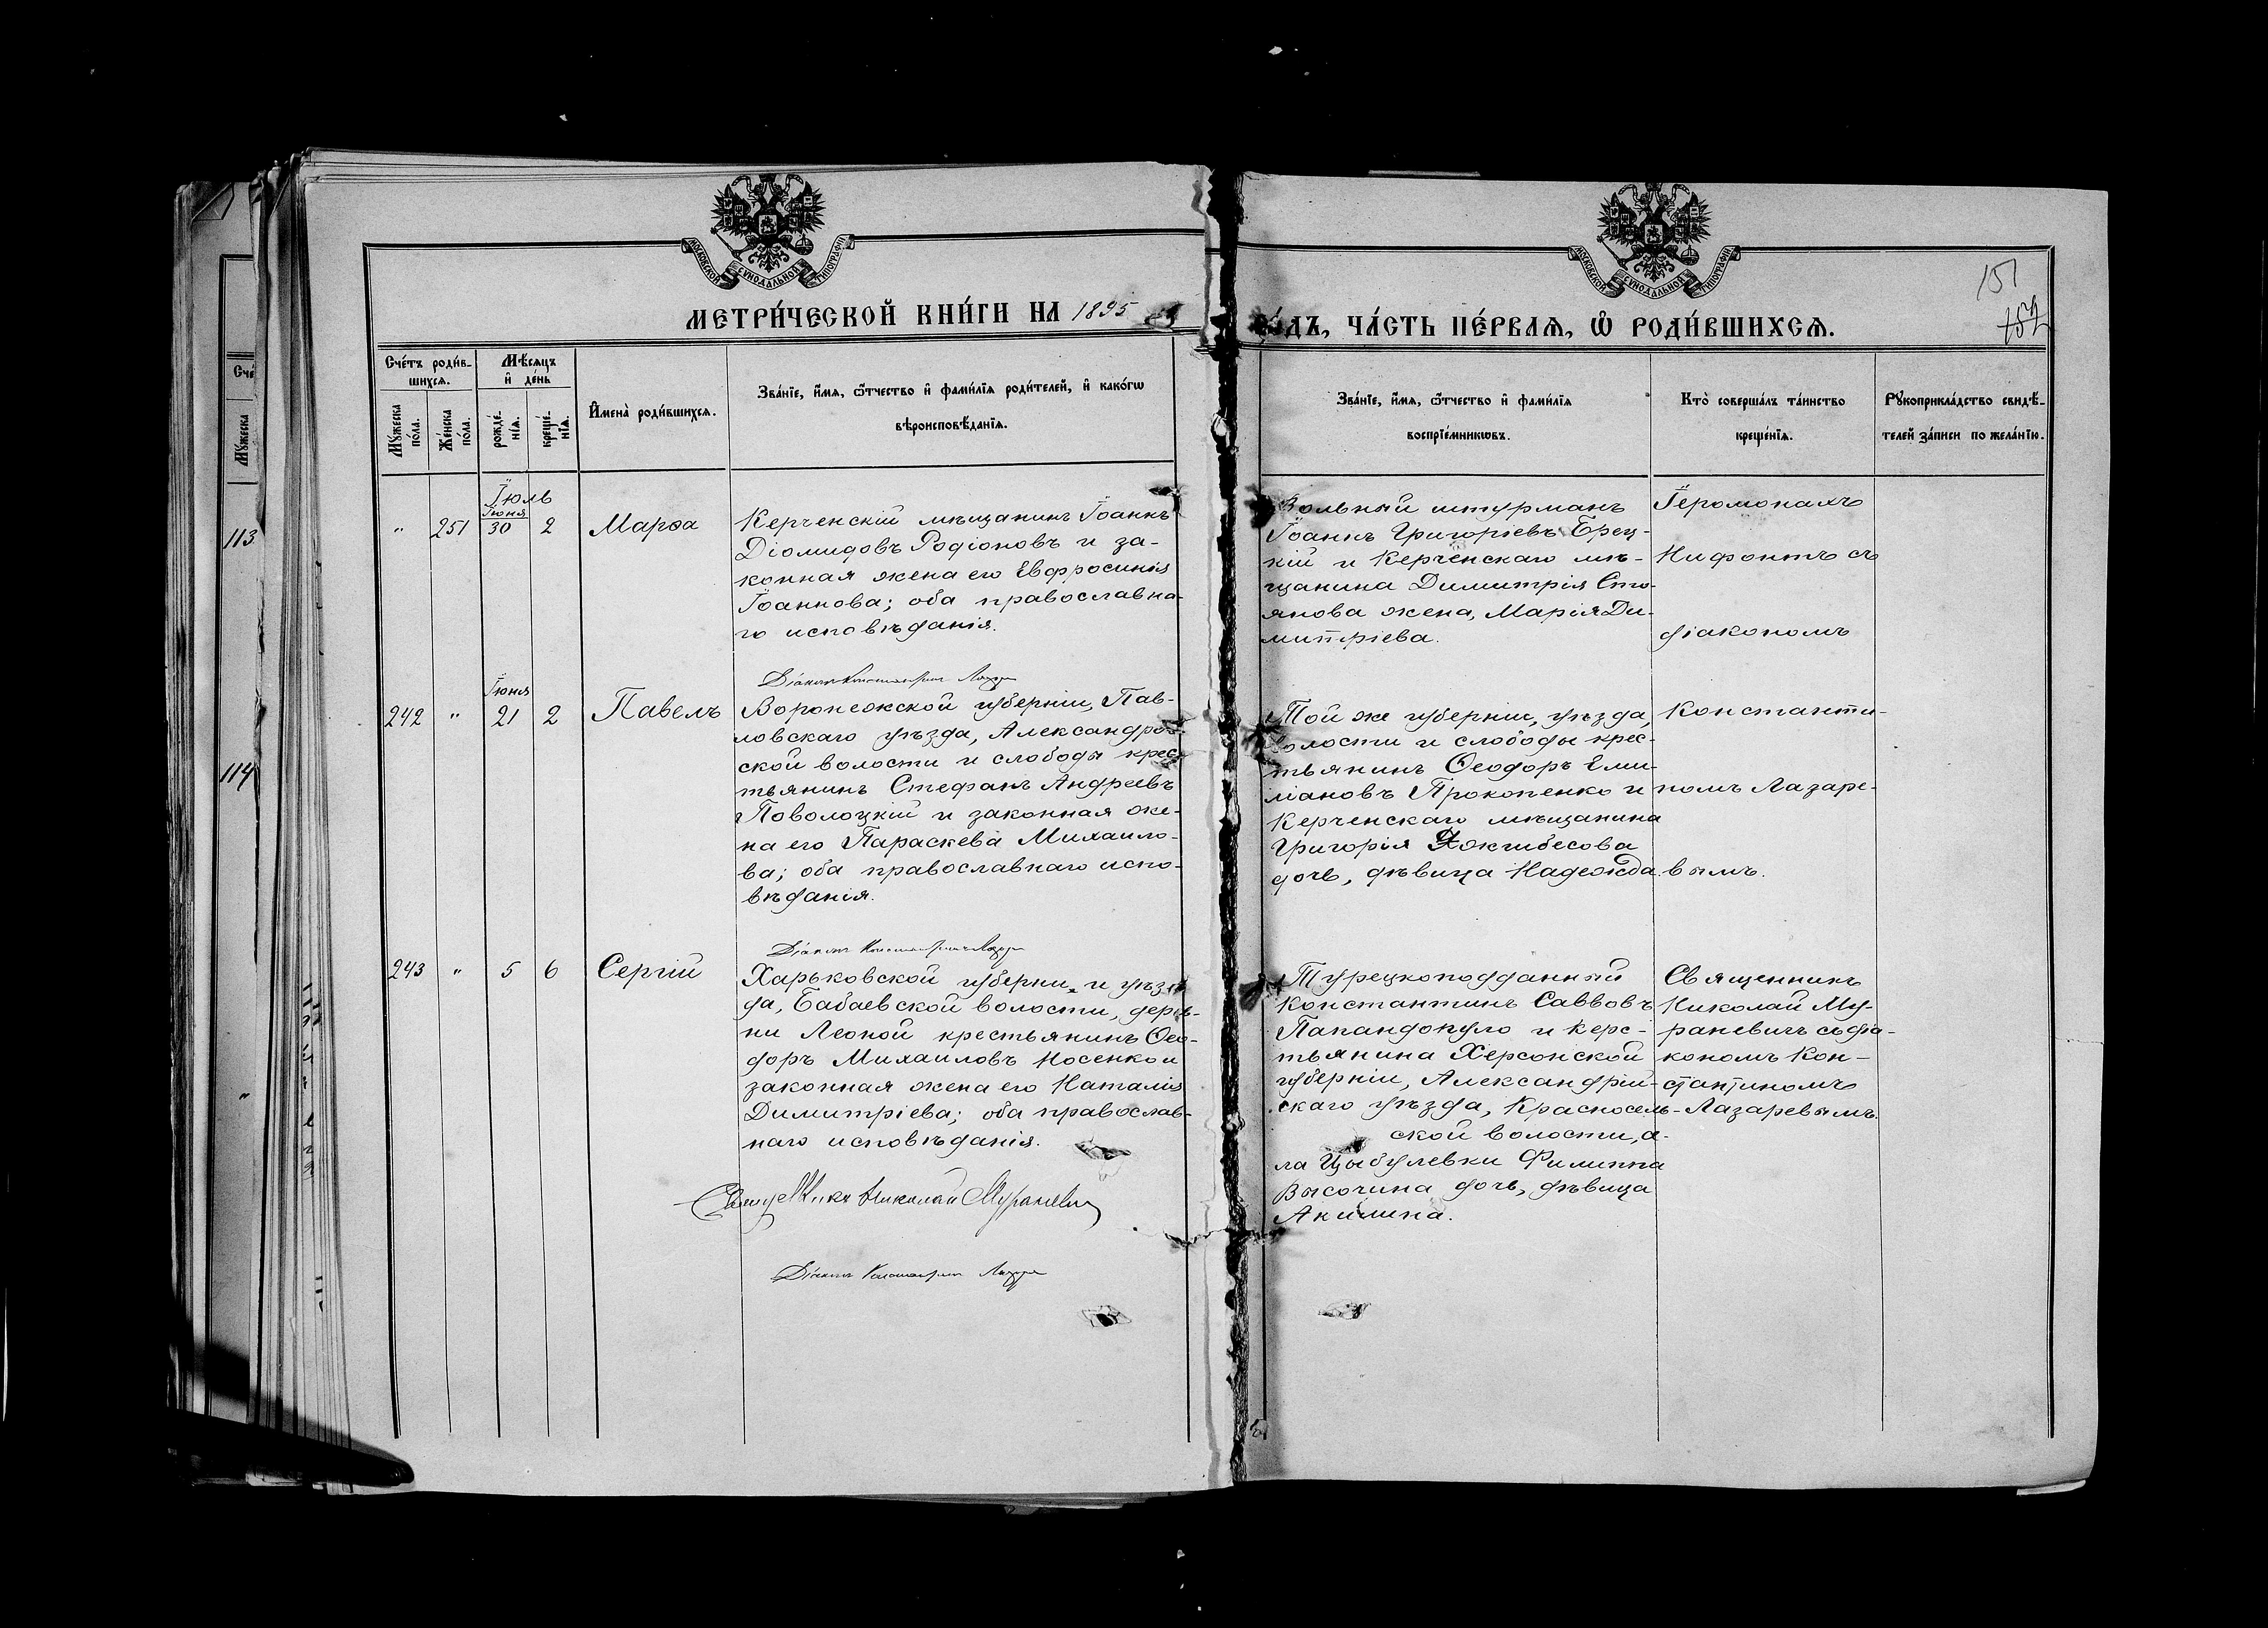 МОСКОВСКОЙ СѴНОДАЛЬНОЙ ТИПОГРАФІИ
МОСКОВСКОЙ СѴНОДАЛЬНОЙ ТИПОГРАФІИ
151
152
МЕТРИ́ЧЕСКОЙ КНИ́ГИ НА 1895
ДЪ, ЧА́СТЬ ПЕ́РВАѦ, Ѽ РОДИ́ВШИХСѦ.
Сче́тъ роди́в-
шихсѧ.
Мꙋжеска
по́ла.
Же́нска
по́ла.
Мѣ́сѧцъ
и҆ де́нь
рожде́-
нїѧ.
креще́-
нїѧ.
И҆мена̀ роди́вшихсѧ.
Зва́нїе, и҆́мѧ, ѻ҆́тчество и҆ фами́лїѧ роди́телей, и҆ како́гѡ
вѣроисповѣ́данїѧ.
Зва́нїе, и҆́мѧ, ѻ҆́тчество и҆ фами́лїѧ
воспрїе́мникѡвъ.
Кто̀ соверша́лъ та́инство
креще́нїѧ.
Рꙋкоприкла́дство свидѣ́-
телей за́писи по жела́нїю.
Сче́
Мꙋжеска
113
114
"
Іюль
Іюня
" 251 30 2 Марѳа
Керченскій мѣщанинъ Іоаннъ
Діомидовъ Родіоновъ и за-
конная жена его Евфросинія
Іоаннова; оба православна-
го исповѣданія.
Вольный штурманъ
Іоаннъ Григоріевъ Ерец-
кій и Керченскаго мѣ-
щанина Димитрія Сто-
янова жена, Марія Ди-
митріева.
Іеромонахъ
Нифонтъ съ
діакономъ
Діаконъ Константинъ
Іюня
242 " 21 2 Павелъ
Воронежской губерніи, Пав-
ловскаго уѣзда, Александров-
ской волости и слободы крес-
тьянинъ Стефанъ Андреевъ
Поволоцкій и законная же-
на его Параскева Михаило-
ва; оба православнаго испо-
вѣданія.
Той же губерніи, уѣзда,
волости и слободы крес-
тьянинъ Ѳеодоръ Еми-
ліановъ Прокопенко и
Керченскаго мѣщанина
Григорія
дочь, дѣвица Надежда.
Константи-
номъ Лазаре-
вымъ.
Діаконъ Константинъ
243 " 5 6 Сергій
Харьковской губерніи и уѣз-
да, Бабаевской волости, дерев-
ни Леоной крестьянинъ Ѳео-
доръ Михаиловъ Носенко и
законная жена его Наталія
Димитріева; оба православ-
наго исповѣданія.
Турецкоподданный
Константинъ Саввовъ
Папандопуло и керс-
тьянина Херсонской
губерніи, Александрій-
скаго уѣзда, Красносель-
ской волости,
ла Цыбулевки Филиппа
Высочина дочь, дѣвица
Акилина.
Священникъ
Николай Му-
раневичъ съ діа-
кономъ Кон-
стантиномъ
Лазаревымъ.
Священникъ Николай Мураневичъ
Діаконъ Константинъ